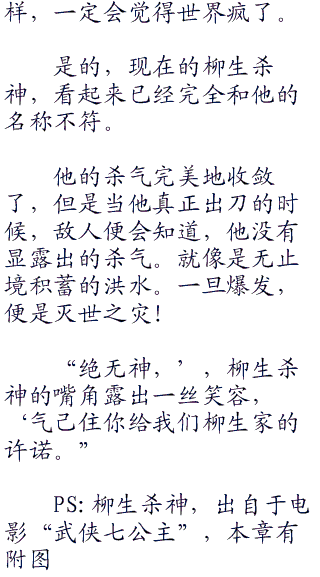 样，一定会觉得世界疯了。
是的，现在的柳生杀
神，看起来已经完全和他的
名称不符。
他的杀气完美地收敛
了，但是当他真正出刀的时
候，敌人便会知道，他没有
显露出的杀气。就像是无止
境积蓄的洪水。一旦爆发，
便是灭世之灾！
“绝无神，’，柳生杀
神的嘴角露出一丝笑容，
‘气己住你给我们柳生家的
许诺。”
PS: 柳生杀神，出自于电
影“武侠七公主”，本章有
附图